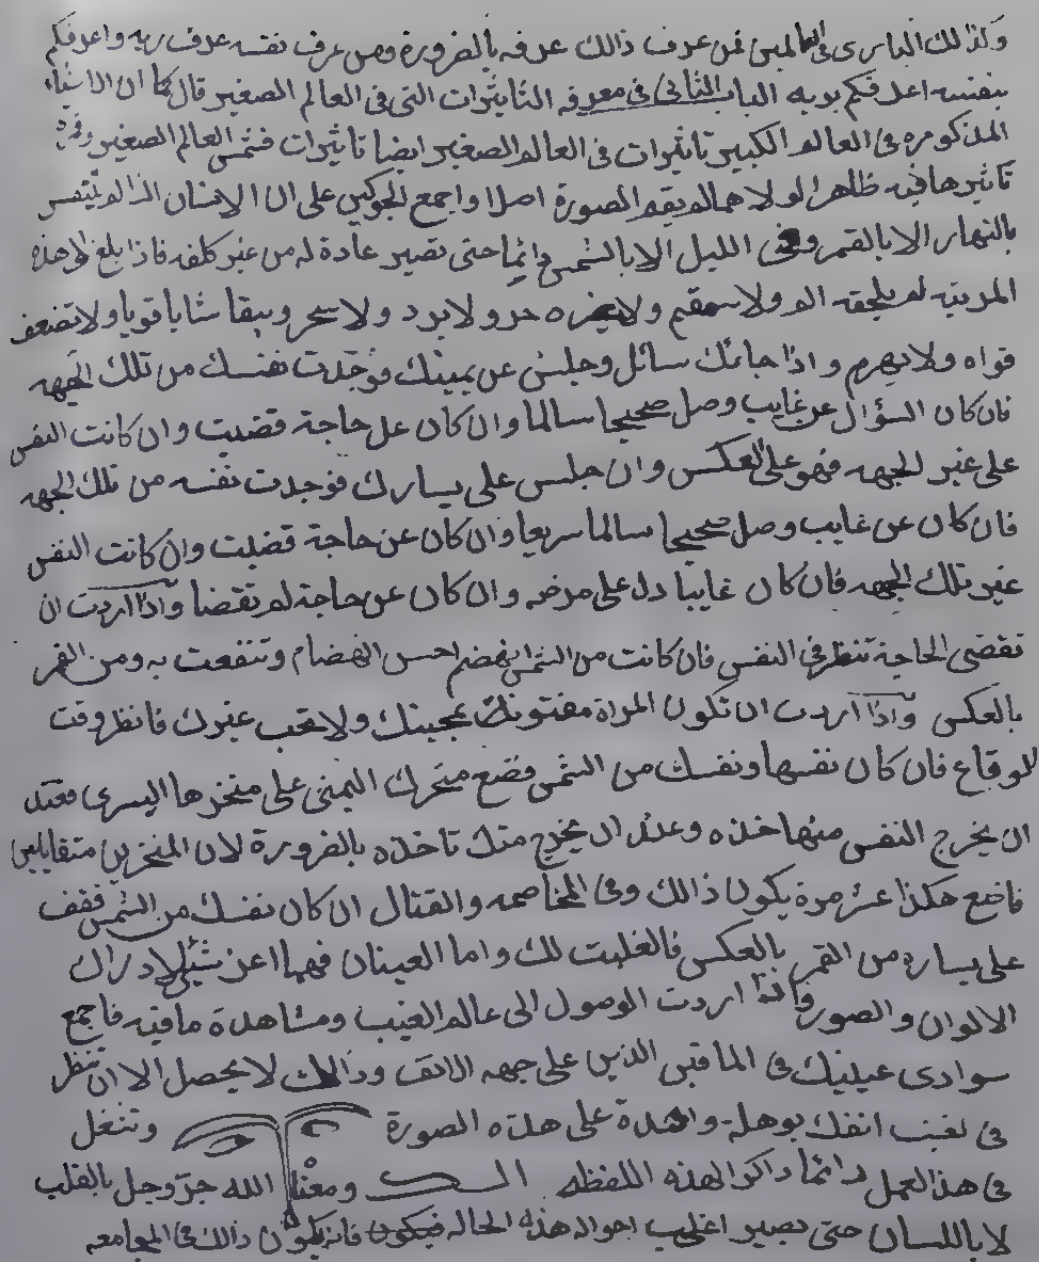 وكذلك البارى فى العالمين فمن عرف ذالك عرفه بالضرورة ومن عرف نفسه عرف ربه واعرفكم
بنفسه اعرفكم بربه الباب الثانى فى معرفة التاثيرات التى فى العالم الصغير قال كما ان الاشياء
المذكوره فى العالم الكبير تاثيرات فى العالم الصغير ايضا تاثيرات فشمس العالم الصغير وقمره
تاثيرها فيه ظاهرا لو لاهما لم يقم الصورة اصلا واجمع الجوكين على ان الانسان اذا لم يتنفس
بالنهار الا بالقمر وفى الليل الا بالشمس دائما حتى تصير عادة له من غير كلفه فاذا بلغ هذه
المرتبه لم يلحقه الم ولا سقم ولا يضره حر ولا برد ولا سحر ويبقا شابا قويا ولا تضعف
قواه ولا يهرم واذا جائك سائل وجلس عن يمينك فوجدت نفسك من تلك الجهه
فان كان السؤال عن غايب وصل صحيحا سالما وان كان عن حاجة قضيت وان كانت النفس
على غير الجهه فهو على العكس وان جلس على يسارك فوجدت نفسه من تلك الجهه
فان كان عن غايب وصل صحيحا سالما سريعا وان كان عن حاجة قضيت وان كانت النفس
غير تلك الجهه فان كان غايبا دل على مرضه وان كان عن حاجة لم تقضا واذا اردت ان
تقضى الحاجة تنظر فى النفس فان كانت من الشمس انهضم احسن انهضام وتنفعت به ومن القمر
بالعكس واذا اردت ان تكون المراة مفتونة بمحبتك ولا تحب غيرك فانظر وقت
الوقاع فان كان نفسها ونفسك من الشمس فضع منخرك اليمنى على منخرها اليسرى فعند
ان يخرج النفس منها خذه وعند ان يخرج منك تاخذه بالضرورة لان المنخرين متقابلين
فاصنع هكذا عشر مرة يكون ذالك وفى المخاصمه والقتال ان كان نفسك من الشمس فقف
على يساره من القمر بالعكس فالغلبت لك واما العينان فهما لادراك
الالوان والصور واذا اردت الوصول الى عالم الغيب ومشاهدة ما فيه فاجمع
سوادى عينيك فى الماقين الذين على جهه الانف وذالك لا يحصل الا ان تنظر
فى انفك على هذه الصورة وتشغل
فى هذا العمل دائما ذاكرا لهذه اللفظه ومعناها الله جز وجل بالقلب
لا باللسان حتى يصير اغليب احواله هذه الحاله فيكون فان يكون ذالك فى المجامعه